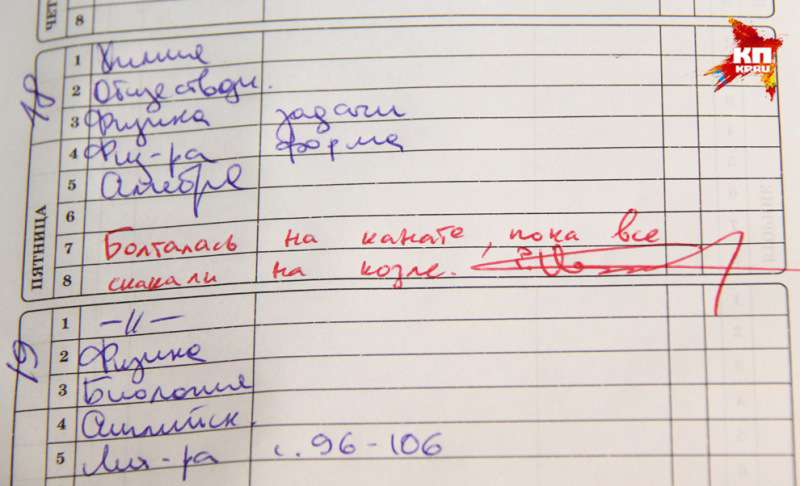 ЧЕТ
8
КП
КРАЦ
18
ПЯТНИЦА
1 Химия
2 Обществозн.
3 Физика задачи
4 Физ-ра форма
5 Алгебра
6
7 Болталась на канате, пока все
8 скакали на козле.
19
1 -//-
2 Физика
3 Биология
4 Английск.
5 Лит-ра с. 96-106